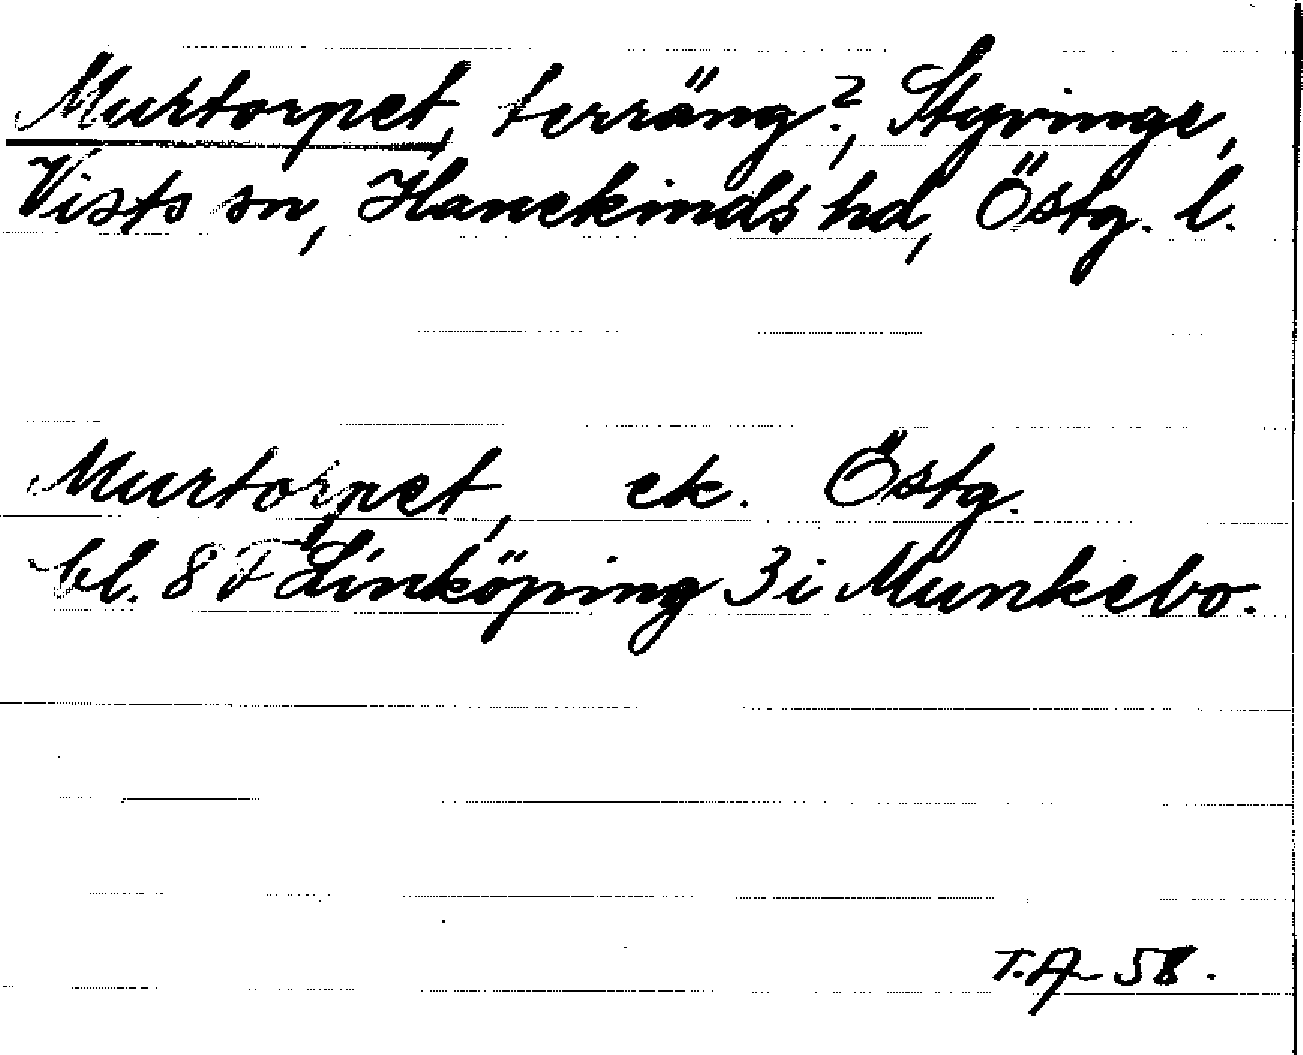 Murtorpet, terräng?, Styvinge,
Vists sn, Hanekinds hd, Östg. l.
Murtorpet, ek. Östg.
bl. 8 F Linköping 3 i Munkebo.
T.A-58.